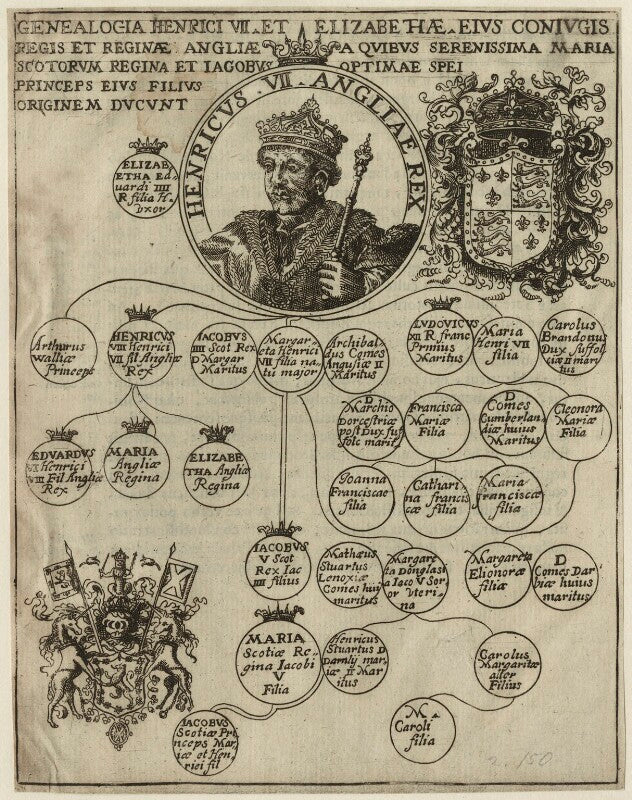 GENEALOGIA HENRICI VII. ET ELIZABETHÆ EIVS CONIVGIS
REGIS ET REGINÆ ANGLIÆ A QVIBVS SERENISSIMA MARIA
SCOTORVM REGINA ET IACOBVS OPTIMAE SPEI
PRINCEPS EIVS FILIVS
ORIGINEM DVCVNT
HENRICVS · VII · ANGLIAE REX
ELIZAB
ETHA Ed-
uardi IIII
R filia H.
Vxor
Arthurus
walliæ
Princeps
HENRICVS
VIII Henrici
VII fil Angliæ
Rex
IACOBVS
IIII Scot Rex
D Margar
Maritus
Margar-
eta Henrici
VII filia na-
tu maior
Archibal-
dus Comes
Angusiæ II
Maritus
LUDOVICUS
XII R franc
Primus
Maritus
Maria
Henri VII
filia
Carolus
Brandonus
Dux suffol
ciæ II mari
tus
D
Marchio
Dorcestriæ
post Dux suf
folc marit
Francisca
Mariæ
Filia
D
Comes
Cumberlan-
diæ huius
Maritus
Cleonora
Mariæ
Filia
EDVARDVS
VI Henrici
VIII Fil Angliæ
Rex
MARIA
Angliæ
Regina
ELIZABE
THA Angliæ
Regina
Joanna
Franciscae
filia
Cathari-
na francis
cæ filia
Maria
franciscæ
filia
IACOBVS
V Scot
Rex Iac
IIII filius
Mathæus
Stuartus
Lenoxiæ
Comes hui9
maritus
Margare
ta Douglasi
a Iaco V Sor
or Vteri-
na
Margareta
Elionoræ
filia
D
Comes Dar
biæ huius
maritus
MARIA
Scotiæ Re-
gina Iacobi
V
Filia
Henricus
Stuartus D
Darnly mar
iæ II Mar
itus
Carolus
Margaritæ
alter
Filius
IACOBVS
Scotiæ Pri
nceps Mar
iæ et Hen
rici fil
M
Caroli
filia
2. 150